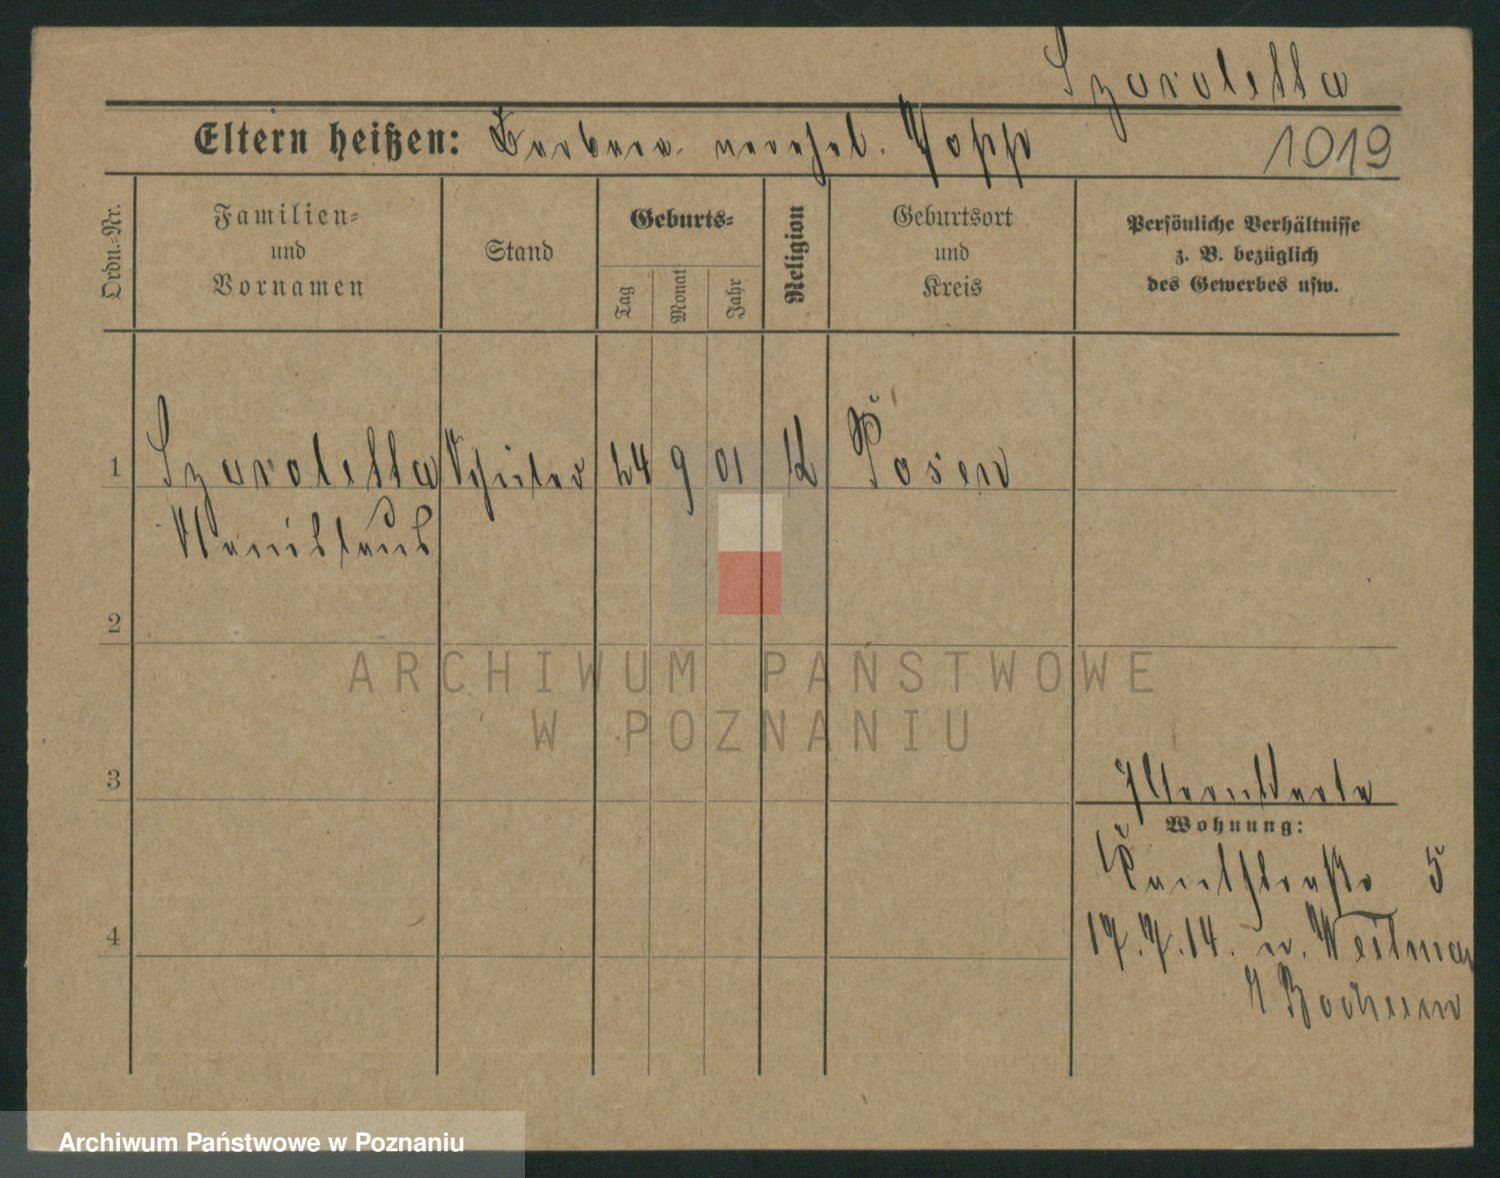 Szaroletta
Eltern heißen: Barbara verehel. Popp
1019
Ordn.-Nr.
Familien-
und
Vornamen
Stand
Geburts-
Tag
Monat
Jahr
Religion
Geburtsort
und
Kreis
Persönliche Verhältnisse
z. B. bezüglich
des Gewerbes usw.
1
Szaroletta Schüler 24 9 01 K Posen
Stanislaus
2
ARCHIWUM PAŃSTWOWE
W POZNANIU
3
Wohnung:
5
4
17.7.14. n. Weitmar
Bochum
Archiwum Państwowe w Poznaniu